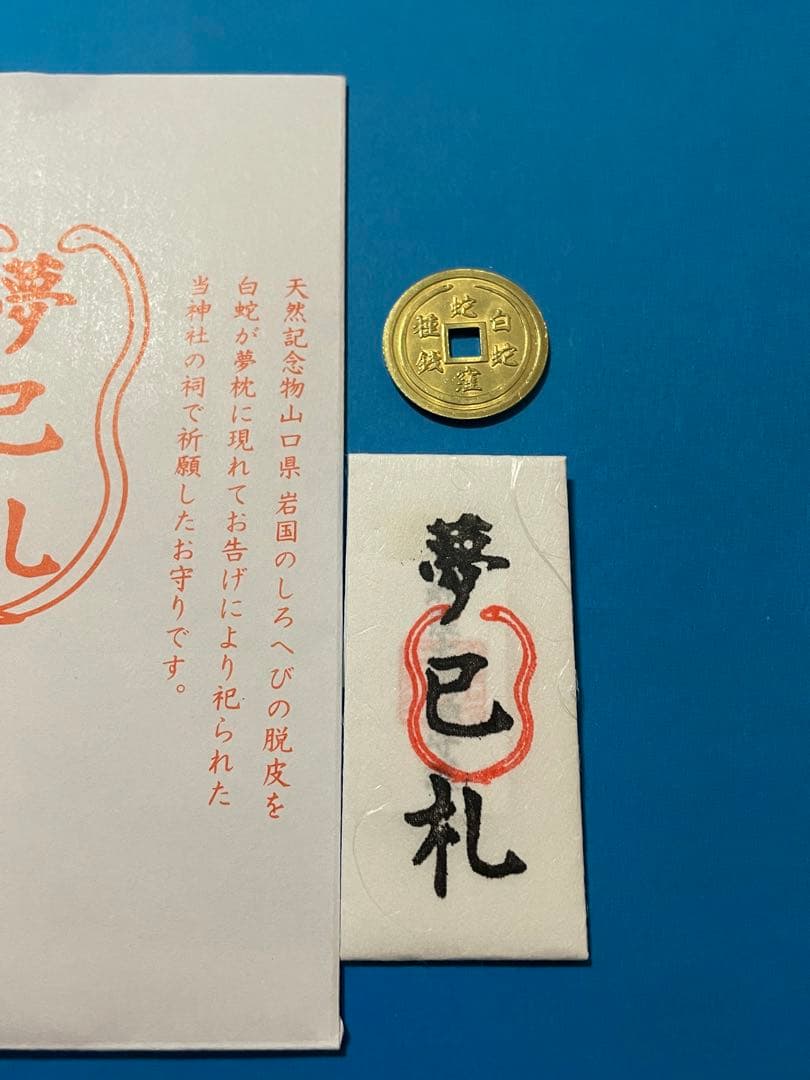 天然記念物山口県 岩国のしろへびの脱皮を
白蛇が夢枕に現れてお告げにより祀られた
当神社の祠で祈願したお守りです。
夢巳札
蛇窪
白蛇
種銭
夢巳札